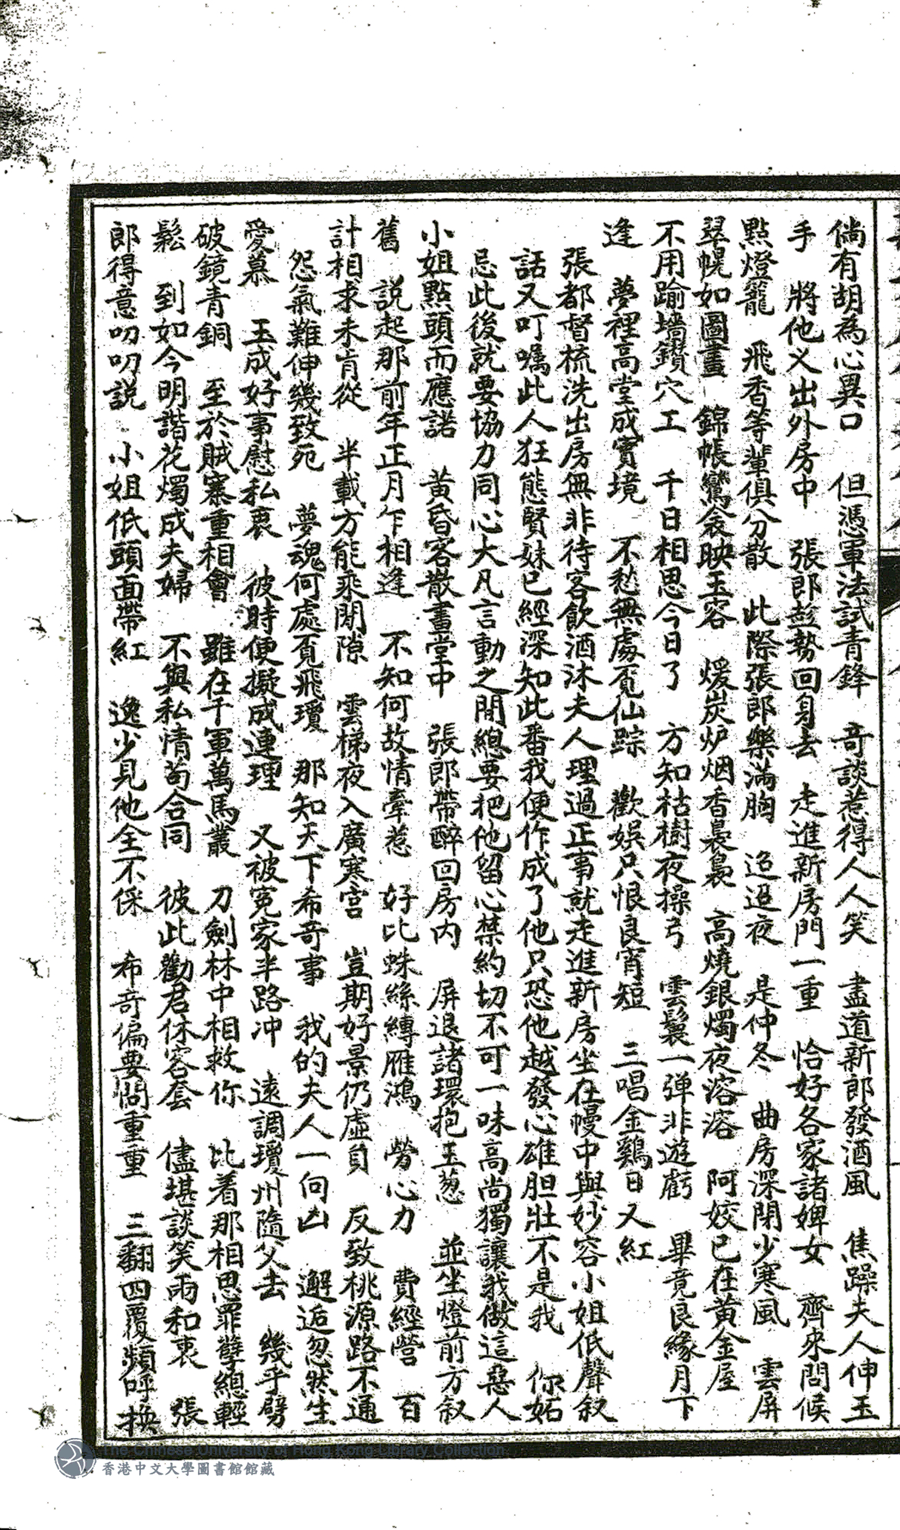 倘有胡為心異口　但憑軍法試青鋒　奇談惹得人人笑　盡道新郎發酒風　焦躁夫人伸玉
手　將他乂出外房中　張郎趂勢回身去　走進新房門一重　恰好各家諸婢女　齊來問候
點燈籠　飛香等輩俱分散　此際張郎樂滿胸　迢迢夜　是仲冬　曲房深閉少寒風　雲屏
翠幌如圖畫　錦帳鸞衾映玉容　煖炭炉烟香裊裊　高燒銀燭夜溶溶　阿姣已在黃金屋
不用踰墻鑽穴工　千日相思今日了　方知枯樹夜操弓　雲鬟一彈非遊虧　畢竟良緣月下
逢　夢裡高堂成實境　不愁無處覓仙踪　歡娛只恨良宵短　三唱金鷄日又紅
張都督梳洗出房無非待客飲酒沐夫人理過正事就走進新房坐在幔中與妙容小姐低聲叙
話又叮囑此人狂態賢妹已經深知此番我便作成了他只恐他越發心雄胆壯不是我　你妬
忌此後就要協力同心大凡言動之間總要把他留心禁約切不可一味高尚獨讓我做這惡人
小姐點頭而應諾　黃昏客散畫堂中　張郎帶醉回房內　屏退諸環抱玉葱　並坐燈前方叙
舊　說起那前年正月乍相逢　不知何故情牽惹　好比蛛絲縛雁鴻　勞心力　費經營　百
計相求未肯從　半載方能乘閒隙　雲梯夜入廣寒宮　豈期好景仍虛負　反致桃源路不通
怨氣難伸幾致死　夢魂何處覓飛瓊　那知天下希奇事　我的夫人一向凶　邂逅忽然生
愛慕　玉成好事慰私衷　彼時便擬成連理　又被冤家半路冲　遠調瓊州隨父去　幾乎劈
破鏡青銅　至於賊寨重相會　雖在千軍萬馬叢　刀劍林中相救你　比着那相思罪孽總輕
鬆　到如今明諧花燭成夫婦　不與私情苟合同　彼此勸君休客套　儘堪談笑兩和衷　張
郎得意叨叨說　小姐低頭面帶紅　逸少見他全不倸　希奇偏要問重重　三翻四覆頻呼換
The Chinese University of Hong Kong Library Collection
香港中文大學圖書館館藏